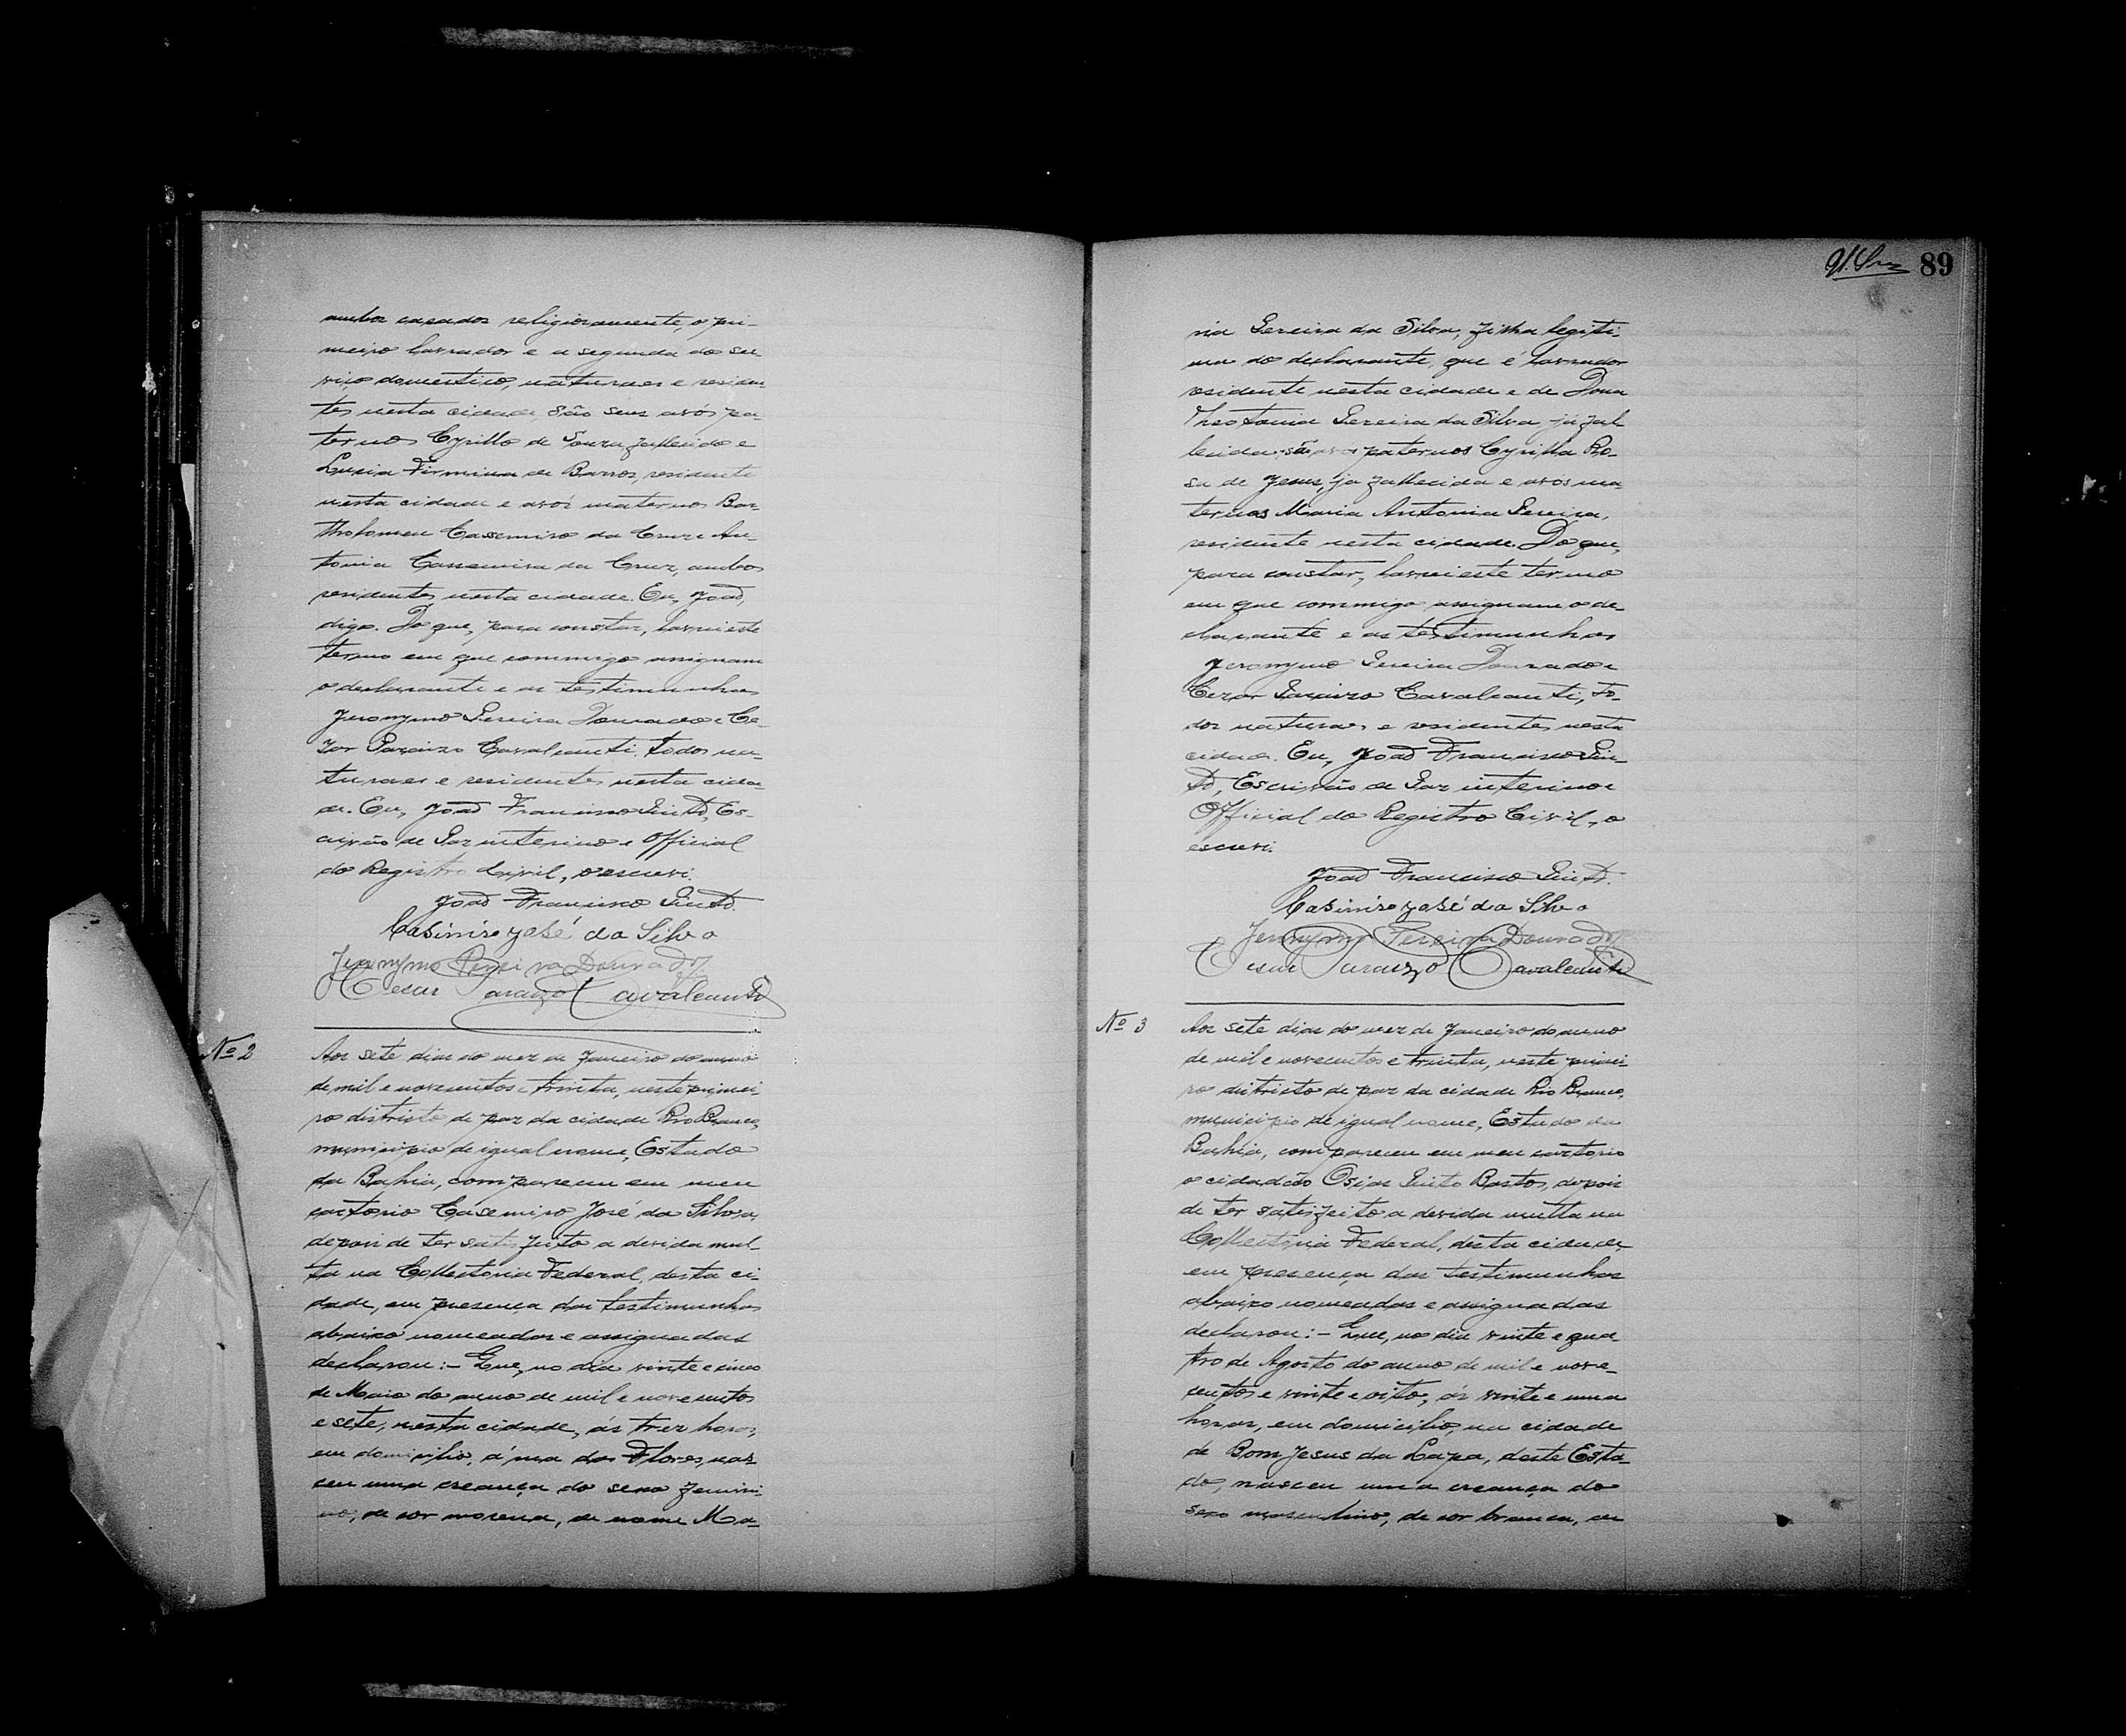 ambos casados religiosamente, o pri-
meiro lavrador e a segunda do ser-
viço domestico, naturaes e residen-
tes nesta cidade, são seus avós pa-
ternos Cyrillo de Souza, fallecido e
Luzia Firmina de Barros, residente
nesta cidade e avós maternos Bar-
tholomeu Casemiro da Cruz e An-
tonia Cassemira da Cruz, ambos
residentes nesta cidade. Eu, João,
digo. Do que, para constar, lavrei este
termo em que commigo assignam
o declarante e as testimunhas
Jeronymo Pereira Dourado e Ce-
zar Paraizo Cavalcanti, todos na-
turaes e residentes nesta cida-
de. Eu, João Francisco Pinto, Es-
crivão de Paz interino e Official
do Registro Civil, o escrevi.
João Francisco Pinto.
Casimiro José da Silva
Jeronymo Pereira Dourado
Cesar Paraizo Cavalcanti
Nº 2
Aos sete dias do mez de Janeiro do anno
de mil e novecentos e trinta, neste primei-
ro districto de paz da cidade Rio Branco,
municipio de igual nome, Estado
da Bahia, compareceu em meu
cartorio Casemiro José da Silva,
depois de ter satisfeito a devida mul-
ta na Collectoria Federal, desta ci-
dade, em presença das testimunhas
abaixo nomeadas e assignadas
declarou:- Que, no dia vinte e cinco
de Maio do anno de mil e novecentos
e sete, nesta cidade, ás trez horas,
em domicilio, á rua das Flores, nas-
ceu uma creança do sexo femini-
no, de cor morena, de nome Ma-
89
ria Pereira da Silva, filha legiti-
ma do declarante, que é lavrador
residente nesta cidade e de Dona
Theotonia Pereira da Silva, já fal-
lecida; são avos paternos Cyrilla Ro-
sa de Jesus, já fallecida e avos ma-
ternos Maria Antonia Pereira,
residente nesta cidade. Do que,
para constar, lavrei este termo
em que commigo assignam o de-
clarante e as testimunhas
Jeronymo Pereira Dourado e
Cezar Paraizo Cavalcanti, to-
dos naturaes e residentes nesta
cidade. Eu, João Francisco Pin-
to, Escrivão de Paz interino e
Official do Registro Civil, o
escrevi.
João Francisco Pinto.
Casimiro José da Silva
Jeronymo Pereira Dourado
Cesar Paraizo Cavalcanti
Nº 3
Aos sete dias do mez de Janeiro do anno
de mil e novecentos e trinta, neste primei-
ro districto de paz da cidade Rio Branco,
municipio de igual nome, Estado da
Bahia, compareceu em meu cartorio
o cidadão Osias Pinto Bastos, depois
de ter satisfeito a devida multa na
Collectoria Federal, desta cidade,
em presença das testimunhas
abaixo nomeadas e assignadas
declarou:- Que, no dia vinte e qua-
tro de Agosto do anno de mil e nove-
centos e vinte e oito, ás vinte e uma
horas, em domicilio, na cidade
de Bom Jesus da Lapa, deste Esta-
do, nasceu uma creança do
sexo masculino, de cor branca, de